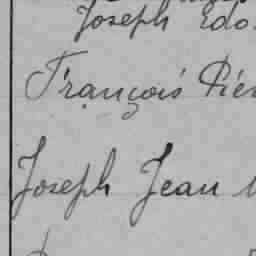 Joseph Edo
François Pier
Joseph Jean